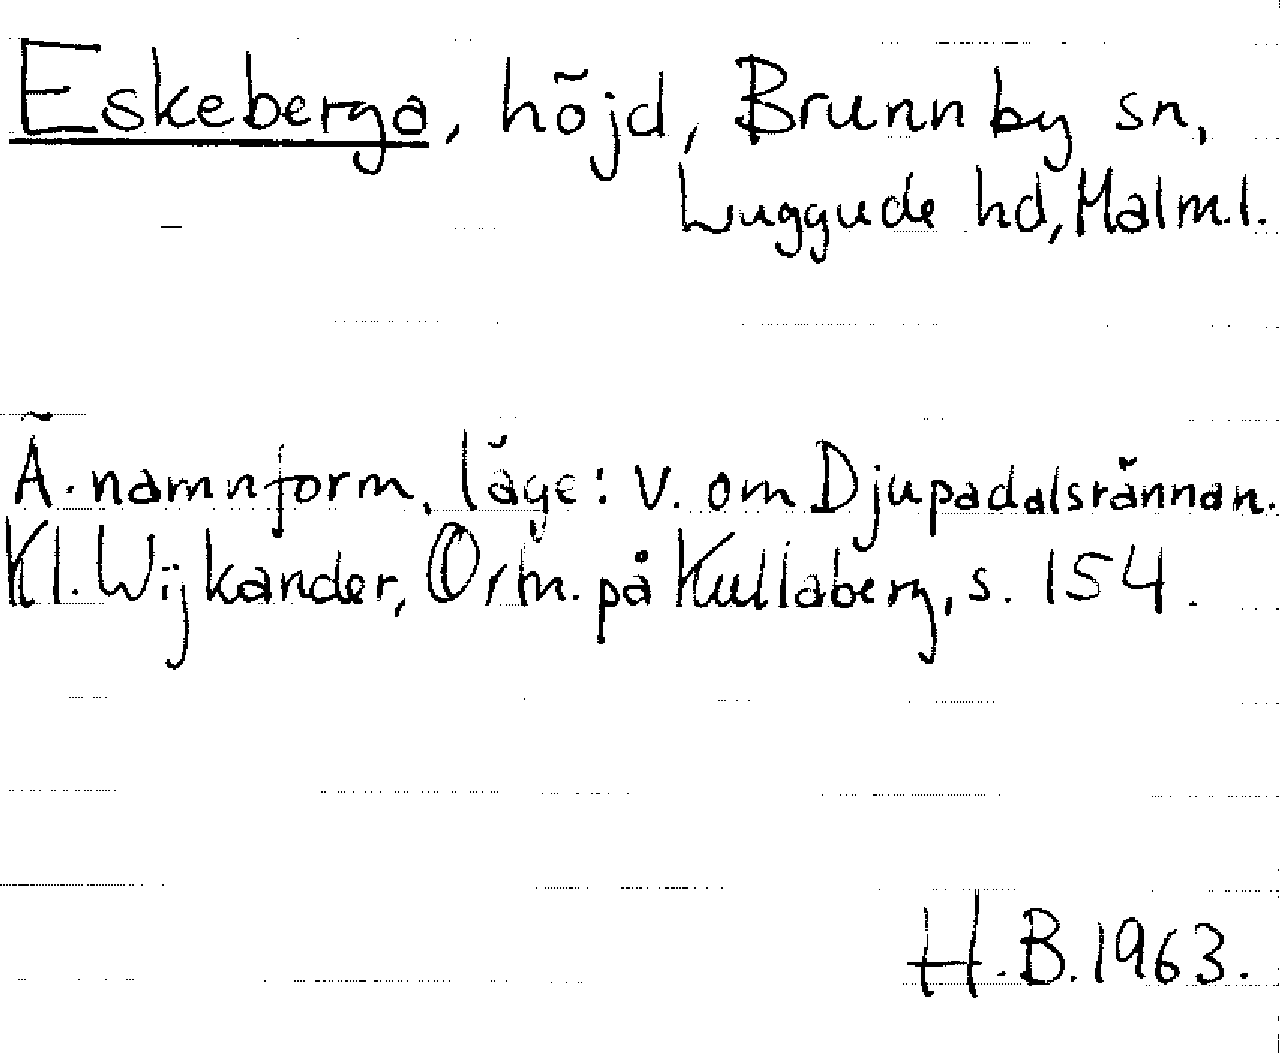 Eskeberga, höjd, Brunnby sn,
Luggude hd, Malm.l.
Ä. namnform, läge: V. om Djupadalsrännan.
Kl. Wijkander, Ortn. på Kullaberg, s. 154.
H.B. 1963.